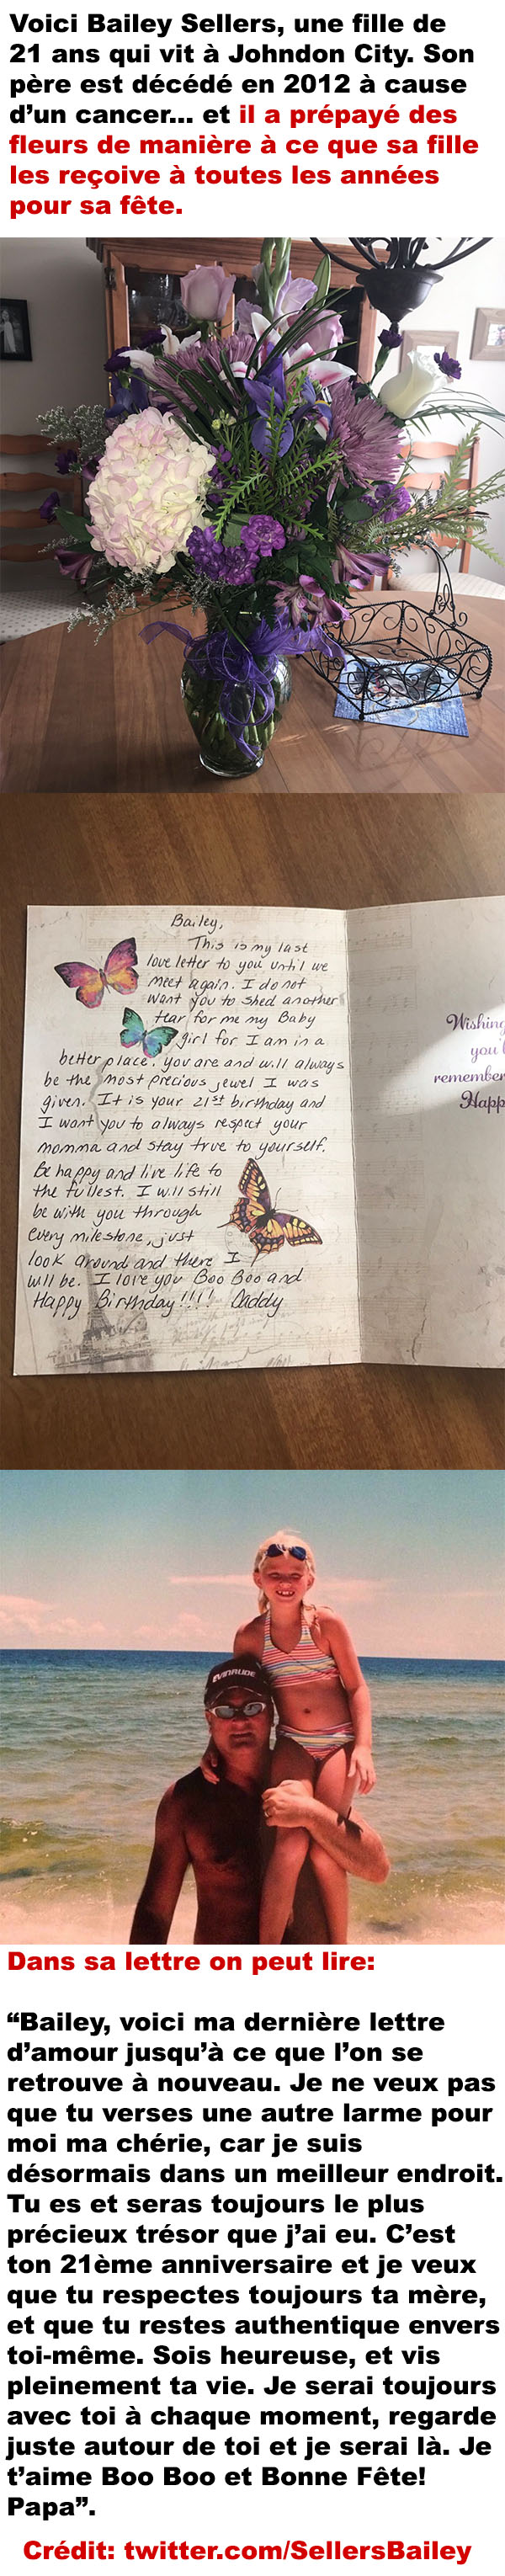 Voici Bailey Sellers, une fille de
21 ans qui vit à Johndon City. Son
père est décédé en 2012 à cause
d’un cancer... et il a prépayé des
fleurs de manière à ce que sa fille
les reçoive à toutes les années
pour sa fête.
Bailey,
This is my last
love letter to you until we
meet again. I do not
want you to shed another
tear for me my Baby
girl for I am in a
better place. you are and will always
be the most precious jewel I was
given. It is your 21st birthday and
I want you to always respect your
momma and stay true to yourself.
Be happy and live life to
the fullest. I will still
be with you through
every milestone, just
look around and there I
will be. I love you Boo Boo and
Happy Birthday!!!! Daddy
Wishing
you
remember
Happ
EVINRUDE
Dans sa lettre on peut lire:
“Bailey, voici ma dernière lettre
d’amour jusqu’à ce que l’on se
retrouve à nouveau. Je ne veux pas
que tu verses une autre larme pour
moi ma chérie, car je suis
désormais dans un meilleur endroit.
Tu es et seras toujours le plus
précieux trésor que j’ai eu. C’est
ton 21ème anniversaire et je veux
que tu respectes toujours ta mère,
et que tu restes authentique envers
toi-même. Sois heureuse, et vis
pleinement ta vie. Je serai toujours
avec toi à chaque moment, regarde
juste autour de toi et je serai là. Je
t’aime Boo Boo et Bonne Fête!
Papa”.
Crédit: twitter.com/SellersBailey